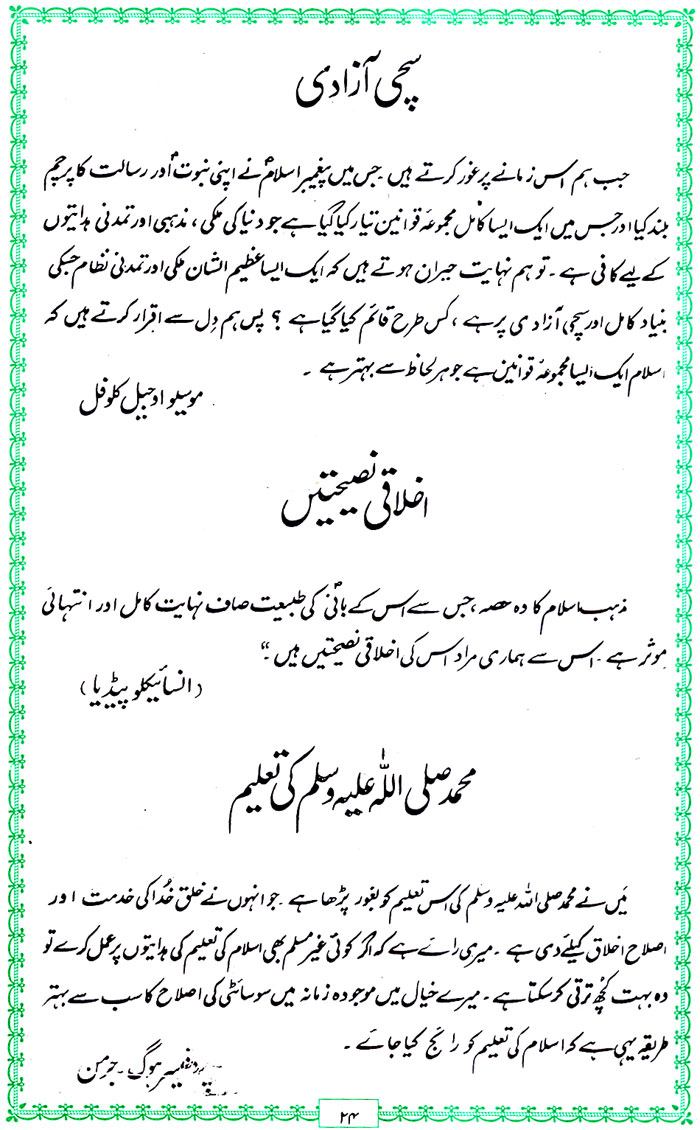 سچی آزادی
جب ہم اس زمانے پر غور کرتے ہیں۔ جس میں پیغمبر اسلامؐ نے اپنی نبوت اور رسالت کا پرچم
بلند کیا اور جس میں ایک ایسا کامل مجموعۂ قوانین تیار کیا گیا ہے جو دنیا کی ملکی، مذہبی اور تمدنی ہدایتوں
کے لیے کافی ہے۔ تو ہم نہایت حیران ہوتے ہیں کہ ایک ایسا عظیم الشان ملکی اور تمدنی نظام جسکی
بنیاد کامل اور سچی آزادی پر ہے، کس طرح قائم کیا گیا ہے؟ پس ہم دل سے اقرار کرتے ہیں کہ
اسلام ایک ایسا مجموعۂ قوانین ہے جو ہر لحاظ سے بہتر ہے۔
موسیو اوجیل کلوفل
اخلاقی نصیحتیں
مذہب اسلام کا وہ حصہ، جس سے اس کے بانیؐ کی طبیعت صاف نہایت کامل اور انتہائی
موثر ہے۔ اس سے ہماری مراد اس کی اخلاقی نصیحتیں ہیں۔“
(انسائیکلوپیڈیا)
محمد صلی اللہ علیہ وسلم کی تعلیم
میں نے محمد صلی اللہ علیہ وسلم کی اس تعلیم کو بغور پڑھا ہے۔ جو انہوں نے خلق خُدا کی خدمت اور
اصلاح اخلاق کیلئے دی ہے۔ میری رائے ہے کہ اگر کوئی غیر مسلم بھی اسلام کی تعلیم کی ہدایتوں پر عمل کرے تو
وہ بہت کچھ ترقی کر سکتا ہے۔ میرے خیال میں موجودہ زمانہ میں سوسائٹی کی اصلاح کا سب سے بہتر
طریقہ یہی ہے کہ اسلام کی تعلیم کو رائج کیا جائے۔
پروفیسر ہوگ۔ جرمن
۲۴